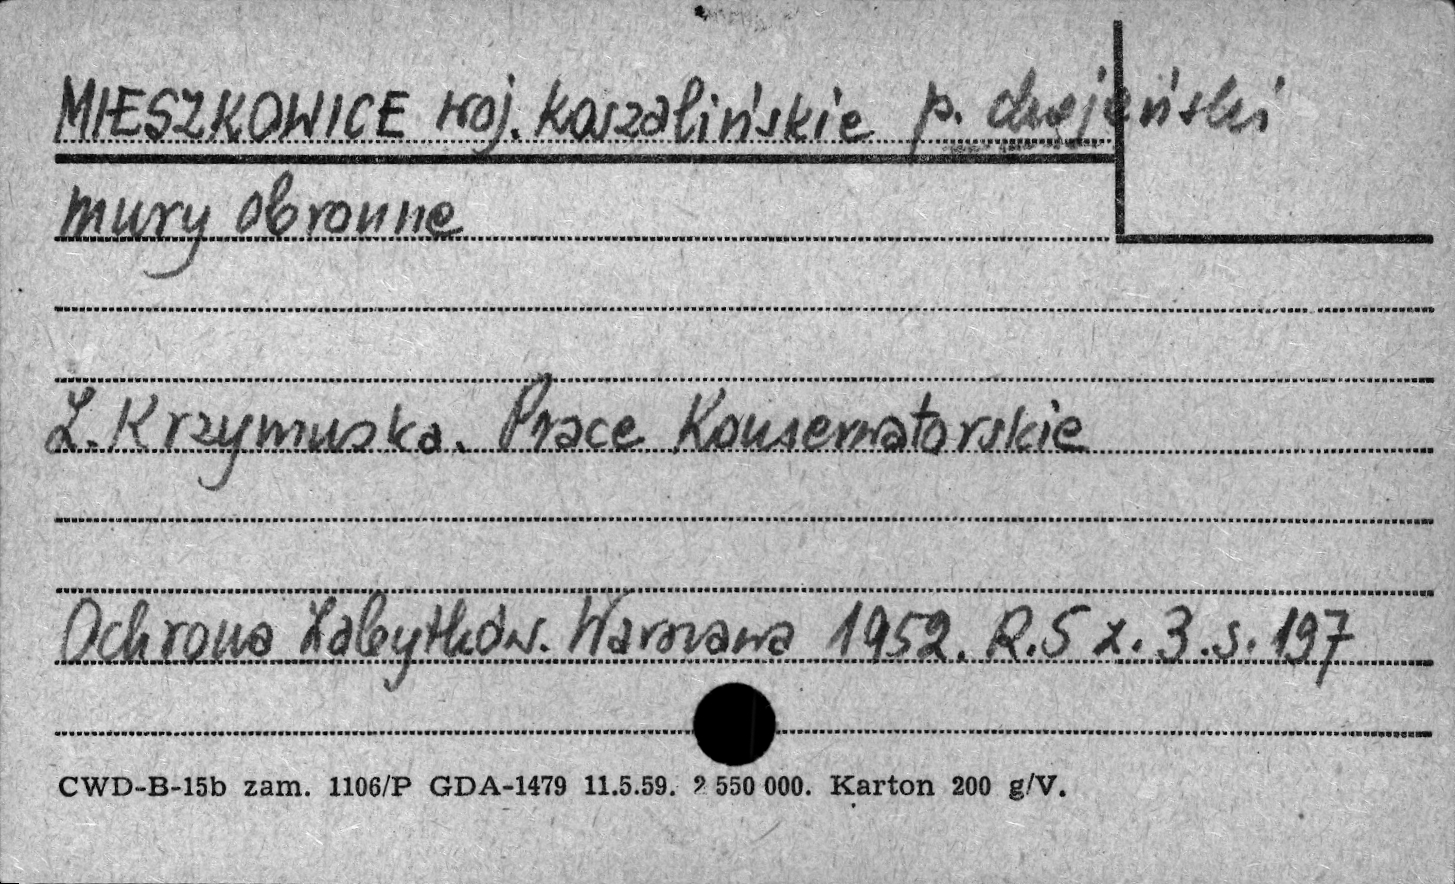 MIESZKOWICE woj. koszalińskie p. chojeński
mury obronne
Z. Krzymuska. Prace Konserwatorskie
Ochrona Zabytków. Warszawa 1952. R.5 z. 3. s. 197
CWD-B-15b zam. 1106/P GDA-1479 11.5.59. 2 550 000. Karton 200 g/V.